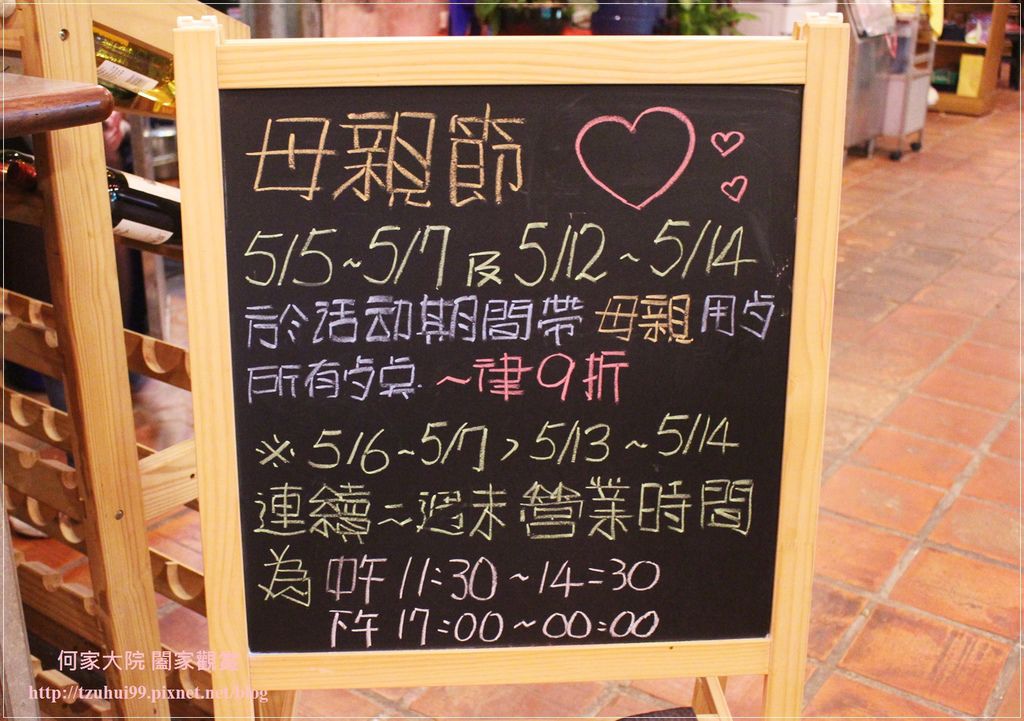 母親節
5/5~5/7 及 5/12~5/14
於活动期間帶母親用歺
所有歺点~律9折
※5/6~5/7,5/13~5/14
連續二週末營業時間
為 中午 11:30~14:30
下午 17:00~00:00
何家大院 闔家觀迎
http://tzuhui99.pixnet.net/blog